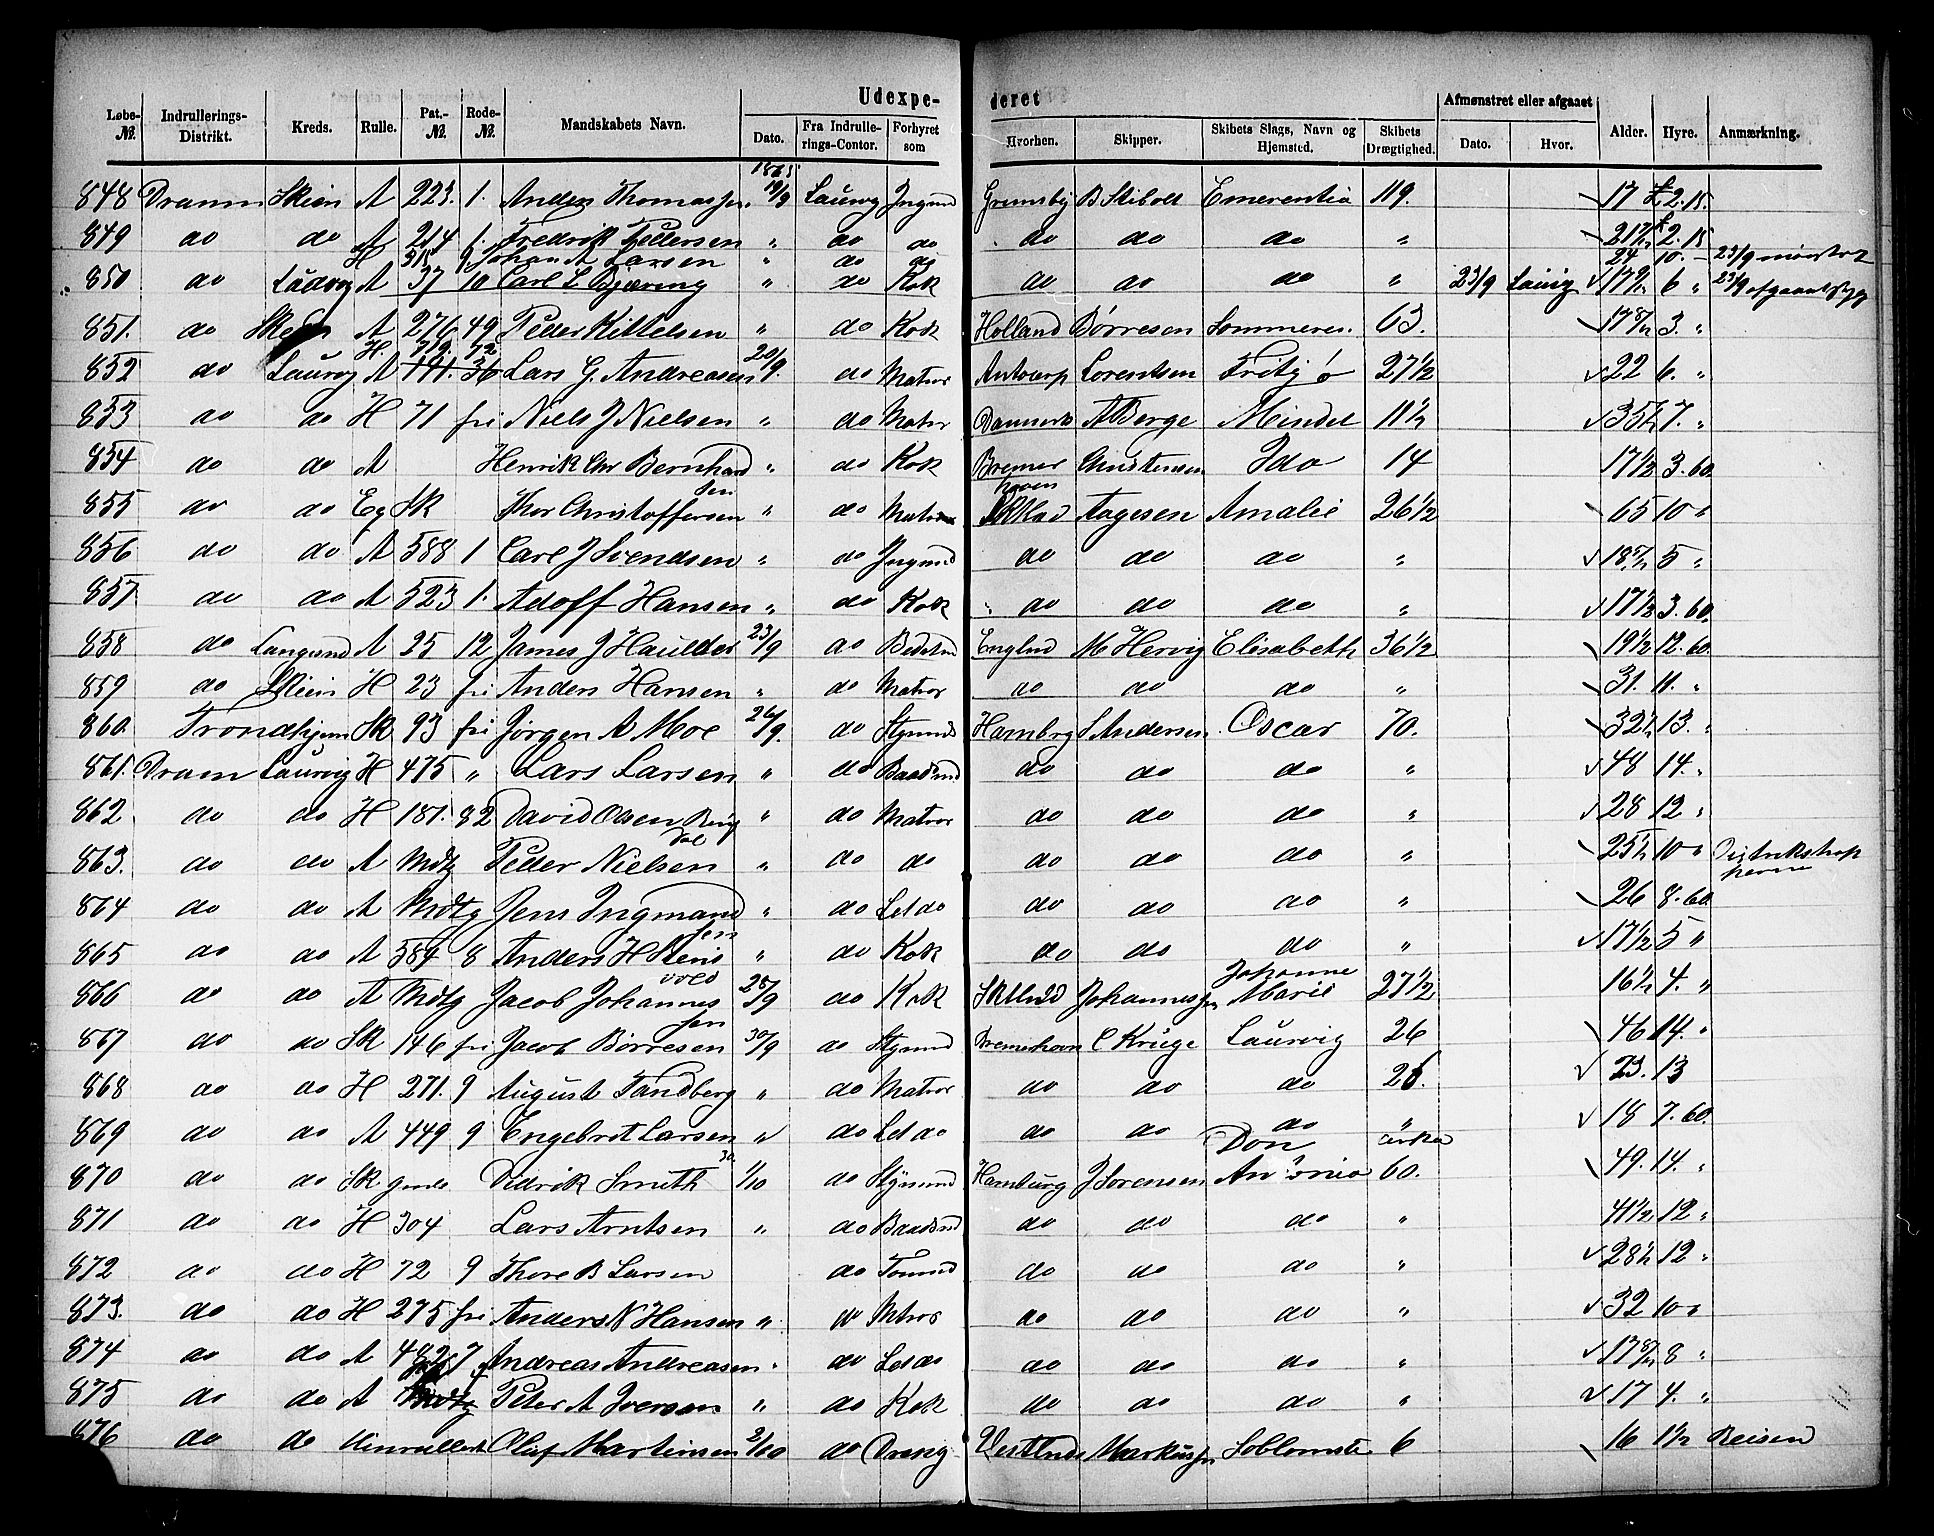 Udexpe- deret
Løbe-№. Indrullerings-Distrikt. Kreds. Rulle. Pat.-№. Rode-№. Mandskabets Navn. Dato. Fra Indrulle-rings-Contor. Forhyret som Hvorhen. Skipper. Skibets Slags, Navn og Hjemsted. Skibets Drægtighed. Afmønstret eller afgaaet Dato. Hvor. Alder. Hyre. Anmærkning.
848 Dramm Skien A 223. 1. Anders Thomassen. 19/9 Laurvig Jngmd Grimsby B Stibolt Emerentia 119. 17 £2.15.
849 do do A 214 1. Fredrik Pettersen " do do do do do " 21 1/2 £2.15
H 315 9. Johan A Larsen " do do 24 10. 23/9 mønstret
850 do Laurvig A 37 10 Carl L Bjæring " do Kok do do do " 23/9 Laurvig 17 1/2 6 " 23/9 afgaaet syg
851. do Skien A 276 49 Peder Kittelsen " do Kok Holland Børresen Sommeren. 63. 17 8/12 3. "
H. 719. 72
852 do Laurvig A 191. 36 Lars G. Andreasen 20/9. do Matros Antwerp Lorentsen Fritzø 27 1/2 22 6. "
853 do do H 71 fri Niels J Nielsen " do Matros Danmark A Berge Mindet 11 1/2 35 1/2 7. "
854 do do A Henrik Chr Bernhardsen " do Kok Bremerhaven Christensen Ida 14 17 1/2 3.60
855 do do Eg Sk Thor Christoffersen " do Matros Aagesen Amalie 26 1/2 65 10 "
856 do do A 588 1 Carl J Svendsen " do Jngmd do do do " 18 5/12 5 "
857 do do A 523 1. Adolf Hansen " do Kok do do do " 17 1/2 3.60.
858 do Langesund A 25 12 James J Haulder 23/9 do Bedstmd Englnd M Hervig Elisabeth 36 1/2 19 1/2 12.60.
859 do Skien H 23 fri Anders Hansen " do Matros do do do " 31. 11. "
860. Trondhjem Sk 93 fri Jørgen A Moe 26/9. do Stymd Hambrg S Andersen. Oscar 70. 32 1/2 13. "
861. Dram Laurvig H 475 " Lars Larsen " do Baadsmd do do do " 48 14. "
862 do do H 181. 82 David Olsen Bergdal " do Matros do do do " 28 12 "
863. do do A Mdtg Peder Nielsen " do do do do do " 25 1/2 10 "
864 do do A Mdtg Jens Ingmandsen " do Let do do do do " 26 8.60
865 do do A 584 8 Anders H Stensvold " do Kok do do do " 17 1/2 5 "
866 do do A Mdtg Jacob Johannessen 28/9 do Kok Johannessen Johanne Marie 27 1/2 16 1/2 4. "
867 do do Sk 146 fri Jacob Børresen 30/9 do Stymd Bremerhavn C Krüge Laurvig 26 46 14. "
868 do do H 271. 9 August Tandberg " do Matros do do do 26. 23. 13
869 do do A 449 9 Engebret Larsen " do Let do do do do " 18 7.60.
870 do do Sk Didrik Smith 1/10 do Stymd Hamburg J Sorensen Don Antonio cirka 60. 49. 14. "
871 do do H 304 Lars Arntsen " do Baadsmd do do do " 41 1/2 12 "
872 do do H 72 9 Thore B Larsen do Tømmd do do do " 28 1/2 12 "
873. do do H 275 fri Anders N Hansen " do Mtros do do do " 32 10 "
874 do do A 482 7 Andreas Andreasen " do Let do do do do " 17 8/12 8 "
875 do do A Mdtg Peter A Iversen " do Kok do do do " 17 4. "
876 do do Uinrullert Oluf Martinsen 2/10 do Dreng Vestlndt Markussen Soblomste 6 16 1 1/2 Reisen